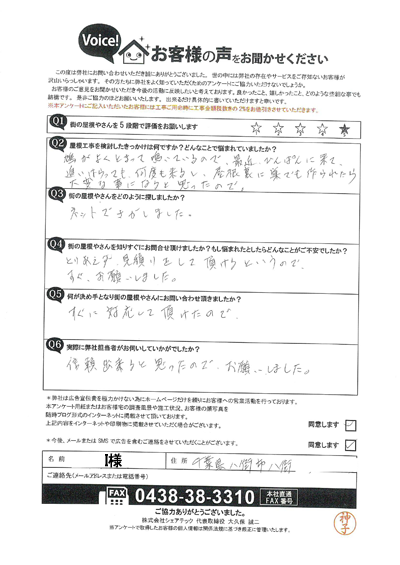 Voice!
お客様の声をお聞かせください
この度は弊社にお問い合わせいただき誠にありがとうございました。世の中には弊社の存在やサービスをご存知ないお客様が
沢山いらっしゃいます。その方たちに弊社をよく知っていただくためのアンケートにご協力いただけないでしょうか。
お客様のご意見をお聞かせいただき今後の活動に反映したいと考えております。良かったこと、嬉しかったこと、どのような些細な事でも
結構です。是非ご協力のほどお願いいたします。出来るだけ具体的に書いていただけますと幸いです。
※本アンケートにご記入いただいたお客様には工事ご用命時に工事金額税抜きの2%をお値引きさせていただきます。
Q1 街の屋根やさんを5段階で評価をお願いします
☆ ☆ ☆ ☆ ★
Q2 屋根工事を検討したきっかけは何ですか?どんなことで悩まれていましたか?
鳩がよくとまって鳴いているので、最近、ひんぱんに来て、
追いはらっても、何度も来るし、屋根裏に巣でも作られたら
大変な事になると思ったので。
Q3 街の屋根やさんをどのように探しましたか?
ネットでさがしました。
Q4 街の屋根やさんを知りすぐにお問合せ頂けましたか?もし悩まれたとしたらどんなことがご不安でしたか?
とりあえず、見積りをして頂けるというので、
すぐ、お願いしました。
Q5 何が決め手となり街の屋根やさんにお問い合わせ頂きましたか?
すぐに対応して頂けたので、
Q6 実際に弊社担当者がお伺いしていかがでしたか?
信頼出来ると思ったので、お願いしました。
*弊社は広告宣伝費を極力かけない為にホームページだけを頼りにお客様への営業活動を行っております。
本アンケート用紙またはお客様宅の調査風景や施工状況、お客様の顔写真を
随時ブログ形式のインターネットに掲載させて頂いております。
上記内容をインターネットや印刷物に掲載させていただく場合がございます。 同意します ☑
*今後、メールまたはSMSで広告を含むご連絡をさせていただくことがございます。 同意します ☑
名前 I様 住所 千葉県八街市八街
ご連絡先(メールアドレスまたは電話番号)
FAX 0438-38-3310 本社直通 FAX番号
ご協力ありがとうございました。
株式会社シェアテック 代表取締役 大久保 誠二
※アンケートで取得したお客様の個人情報は関係法規に基づき厳正に管理いたします。